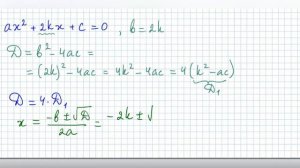 ax² + 2kx + c = 0, b = 2k
D = b² - 4ac =
= (2k)² - 4ac = 4k² - 4ac = 4(k² - ac)
D₁
D = 4·D₁
x = (-b ± √D)/2a = -2k ± √